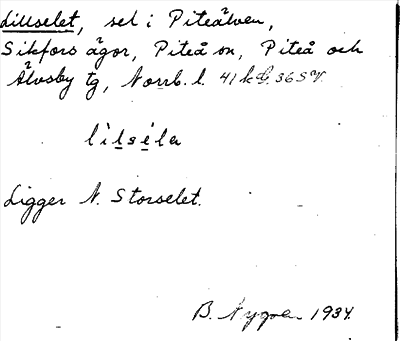 Lillselet, sel i Piteälven,
Sikfors ägor, Piteå sn, Piteå och
Älvsby tg, Norrb. l. 41 k d, 36 SV.
lìlséla
Ligger N. Storselet.
B. Nygren 1934.